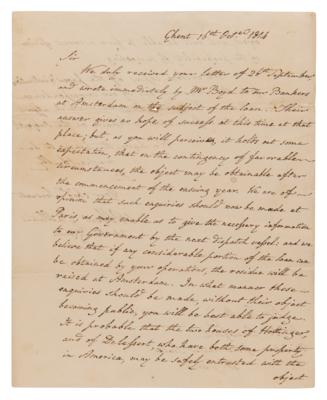 Ghent 16th Octr 1814
Sir
We duly received your letter of 26th September
and wrote immediately by Mr Boyd to our Bankers
at Amsterdam on the subject of the loan. Their
answer gives no hope of success at this time at that
place; but, as you will perceive, it holds out some
expectation, that on the contingency of favorable
circumstances, the object may be obtainable after
the commencement of the ensuing year. We are of
opinion that such enquiries should now be made at
Paris, as may enable us to give the necessary information
to our Government by the next dispatch vessel; and we
believe that if any considerable portion of the loan can
be obtained by your operations, the residue will be
raised at Amsterdam. In what manner these
enquiries should be made, without their object
becoming public, you will be best able to judge.
It is probable that the two houses of Hottinguer,
and of Delessert, who have both some property
in America, may be safely entrusted with the
object